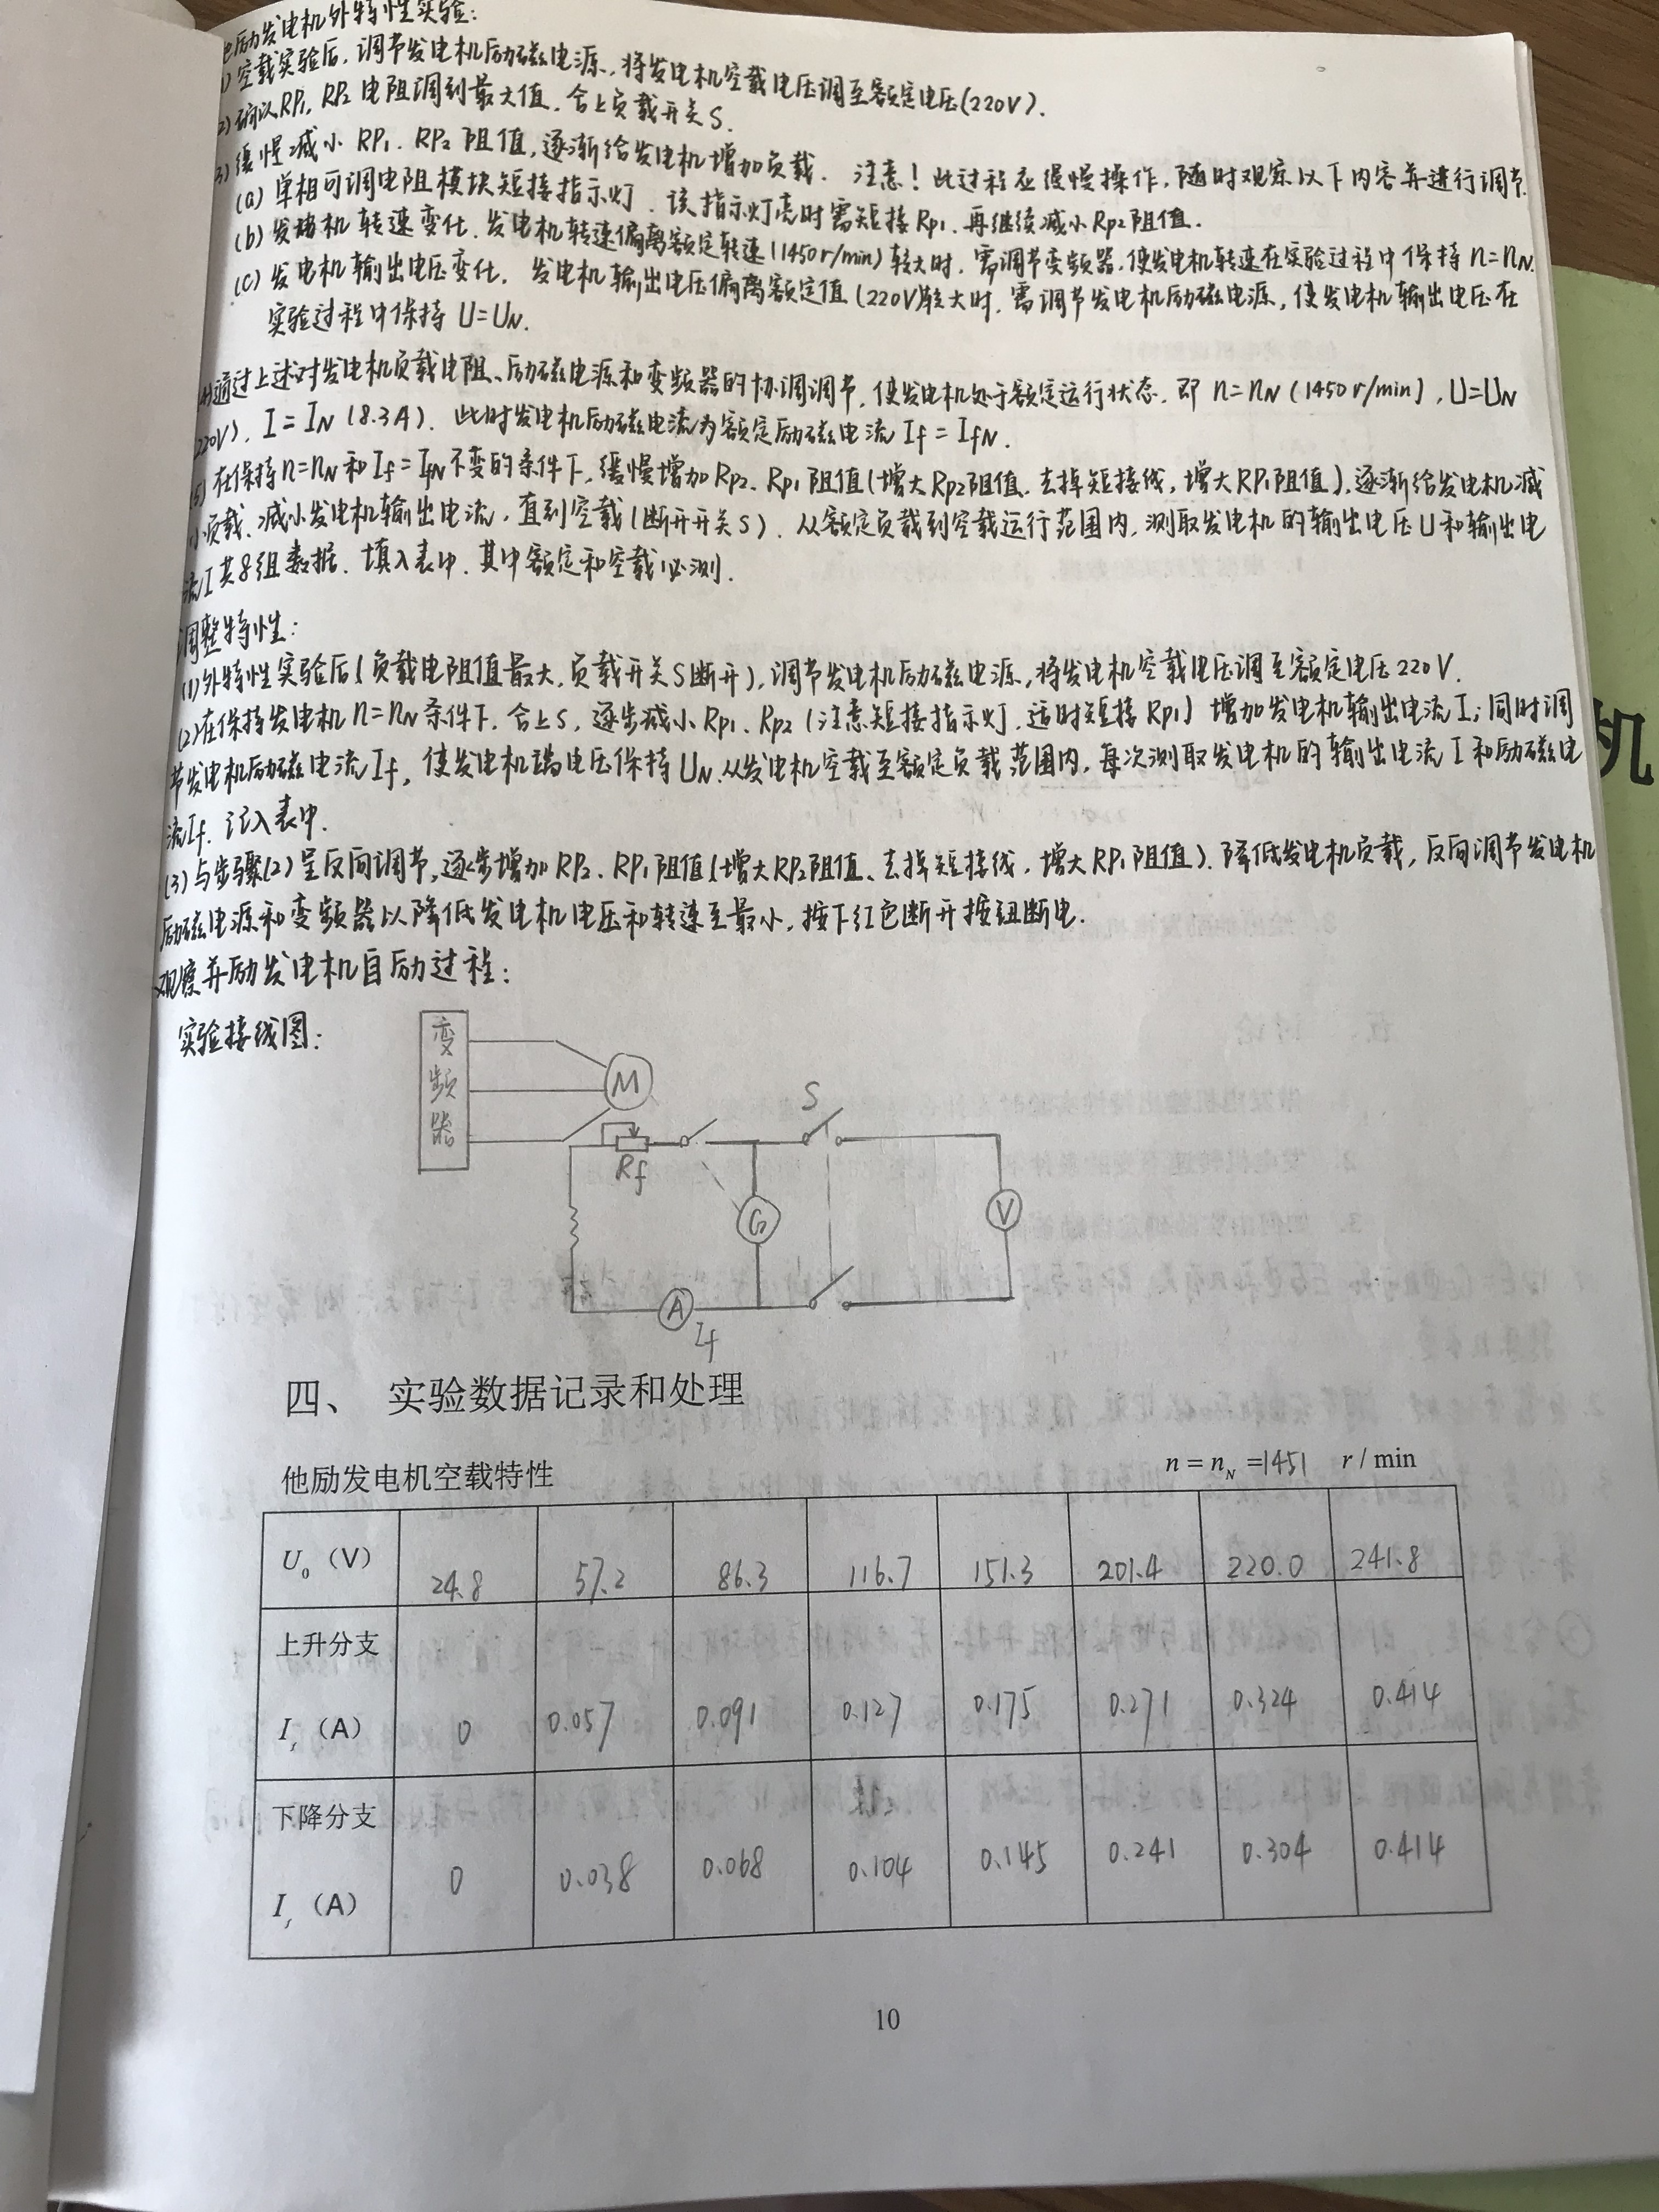 他励发电机外特性实验:
(1) 空载实验后, 调节发电机励磁电源, 将发电机空载电压调至额定电压(220V).
(2) 确认RP1, RP2 电阻调到最大值, 合上负载开关S.
(3) 缓慢减小 RP1、RP2 阻值, 逐渐给发电机增加负载. 注意! 此过程应缓慢操作, 随时观察以下内容并进行调节.
(a) 单相可调电阻模块短接指示灯. 该指示灯亮时需短接Rp1, 再继续减小Rp2阻值.
(b) 发电机转速变化. 发电机转速偏离额定转速(1450r/min)较大时, 需调节变频器, 使发电机转速在实验过程中保持 n=nN.
(c) 发电机输出电压变化. 发电机输出电压偏离额定值(220V)较大时, 需调节发电机励磁电源, 使发电机输出电压在
实验过程中保持 U=UN.
(4)通过上述对发电机负载电阻、励磁电源和变频器的协调调节, 使发电机处于额定运行状态, 即 n=nN (1450r/min), U=UN
(220V), I=IN (8.3A). 此时发电机励磁电流为额定励磁电流 If=IfN.
(5) 在保持n=nN和If=IfN不变的条件下, 缓慢增加Rp2、Rp1阻值(增大Rp2阻值、去掉短接线, 增大RP1阻值), 逐渐给发电机减
小负载, 减小发电机输出电流, 直到空载(断开开关S). 从额定负载到空载运行范围内, 测取发电机的输出电压U和输出电
流I共8组数据, 填入表中. 其中额定和空载必测.
调整特性:
(1)外特性实验后(负载电阻值最大, 负载开关S断开), 调节发电机励磁电源, 将发电机空载电压调至额定电压220V.
(2)在保持发电机n=nN条件下, 合上S, 逐步减小Rp1、Rp2 (注意短接指示灯, 适时短接Rp1) 增加发电机输出电流I; 同时调
节发电机励磁电流If, 使发电机端电压保持UN. 从发电机空载至额定负载范围内, 每次测取发电机的输出电流I和励磁电
流If, 记入表中.
(3) 与步骤(2)呈反向调节, 逐步增加RP2、RP1阻值(增大RP2阻值、去掉短接线, 增大RP1阻值). 降低发电机负载, 反向调节发电机
励磁电源和变频器以降低发电机电压和转速至最小, 按下红色断开按钮断电.
观察并励发电机自励过程:
实验接线图:
变频器
M
S
Rf
G
V
A
If
四、 实验数据记录和处理
他励发电机空载特性 n = nN =1451 r / min
U0 (V) 24.8 57.2 86.3 116.7 151.3 201.4 220.0 241.8
上升分支
If (A) 0 0.057 0.091 0.127 0.175 0.271 0.324 0.414
下降分支
If (A) 0 0.038 0.068 0.104 0.145 0.241 0.304 0.414
10
机